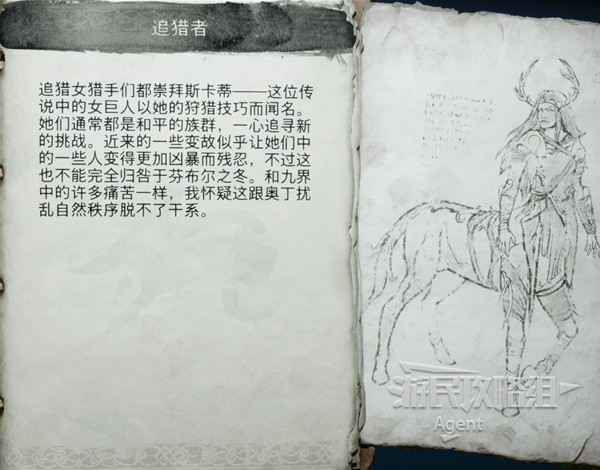 追猎者
追猎女猎手们都崇拜斯卡蒂——这位传
说中的女巨人以她的狩猎技巧而闻名。
她们通常都是和平的族群，一心追寻新
的挑战。近来的一些变故似乎让她们中
的一些人变得更加凶暴而残忍，不过这
也不能完全归咎于芬布尔之冬。和九界
中的许多痛苦一样，我怀疑这跟奥丁扰
乱自然秩序脱不了干系。
游民攻略组
Agent